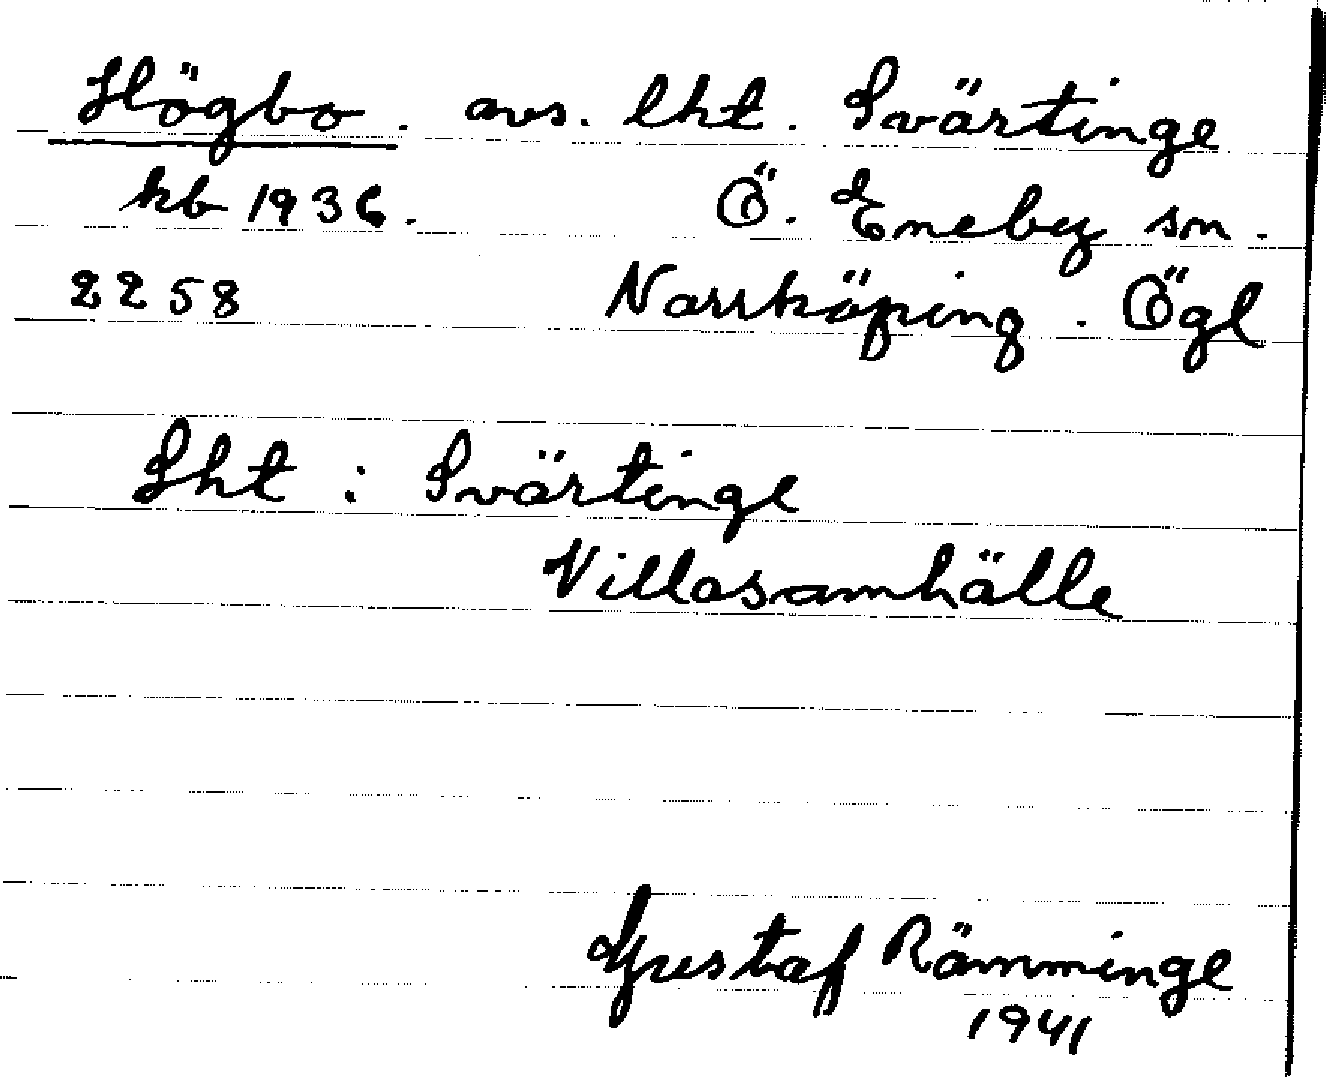 Högbo. avs. lht. Svärtinge
kb 1936. Ö. Eneby sn.
2258 Norrköping. Ögl
Lht: Svärtinge
Villasamhälle
Gustaf Rämminge
1941